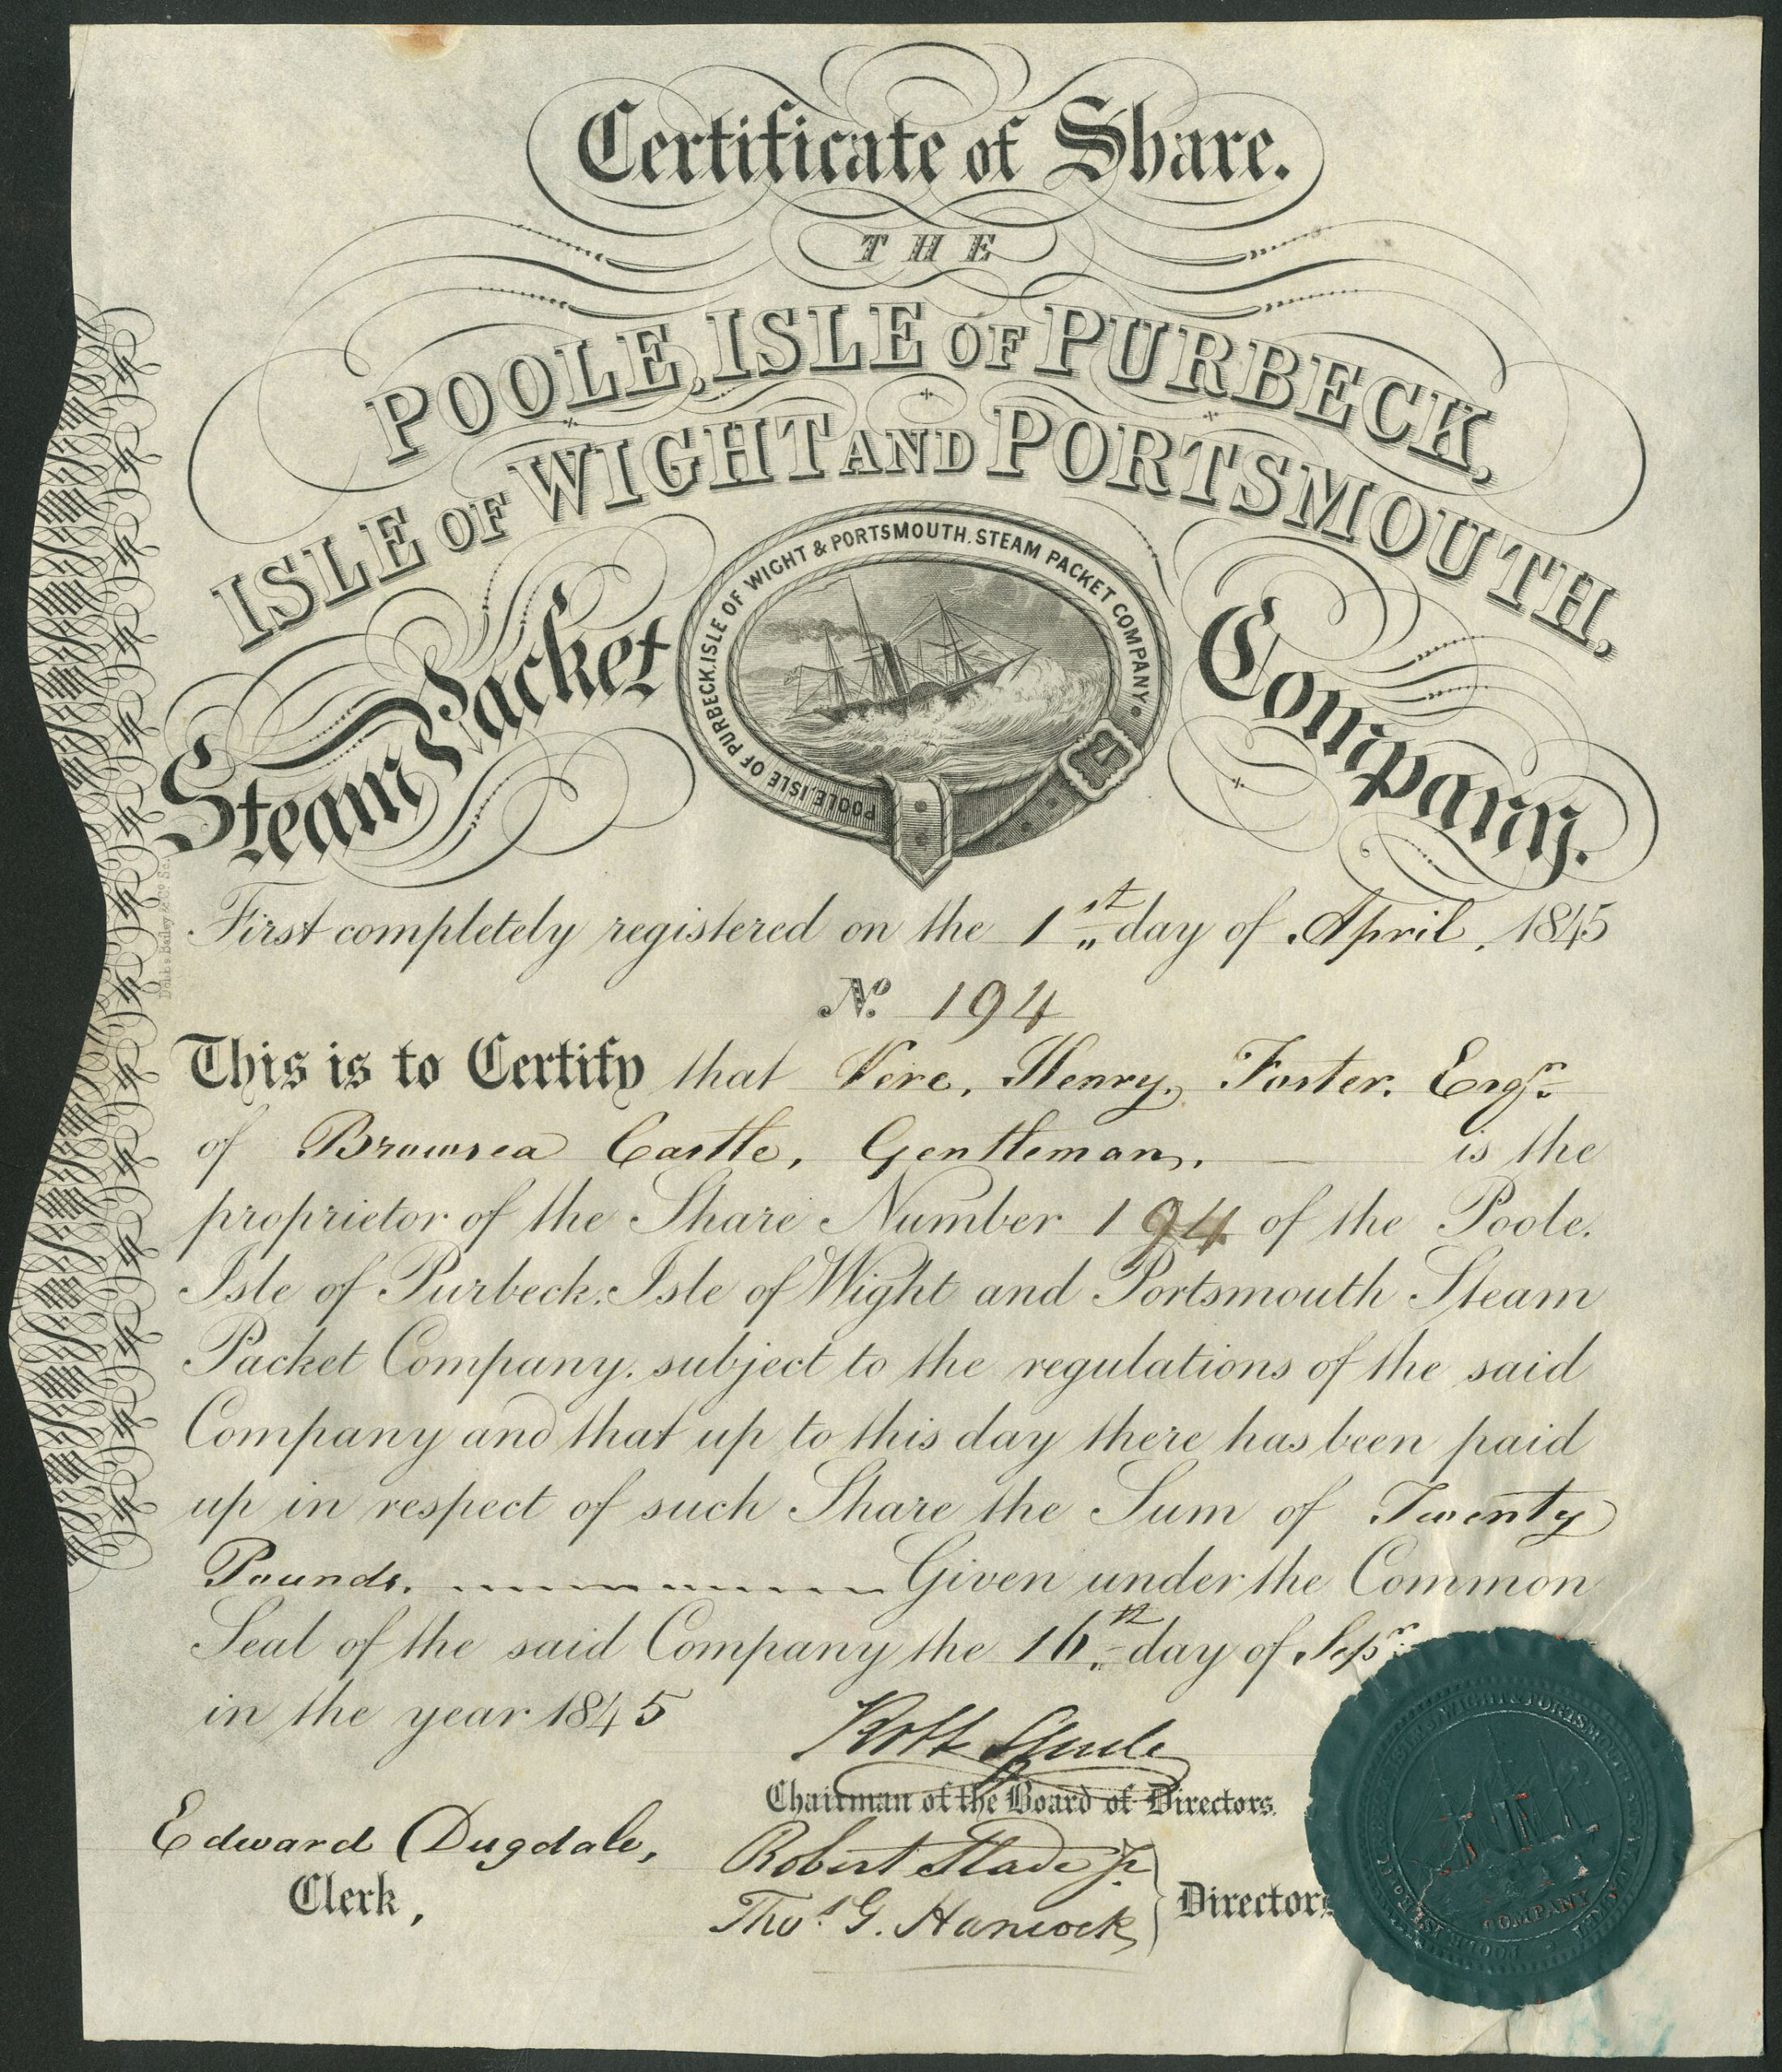 Certificate of Share.
THE
POOLE, ISLE OF PURBECK,
ISLE OF WIGHT AND PORTSMOUTH,
Steam Packet Company.
POOLE, ISLE OF PURBECK, ISLE OF WIGHT & PORTSMOUTH, STEAM PACKET COMPANY.
First completely registered on the 1st day of April, 1845
No. 194
This is to Certify that Vere, Henry, Foster. Esqr.
of Brownsea Castle, Gentleman, is the
proprietor of the Share Number 194 of the Poole.
Isle of Purbeck. Isle of Wight and Portsmouth Steam
Packet Company. subject to the regulations of the said
Company and that up to this day there has been paid
up in respect of such Share the Sum of Twenty
Pounds. Given under the Common
Seal of the said Company the 16th day of Sepr.
in the year 1845
Chairman of the Board of Directors.
Edward Dugdale,
Clerk,
Robert Slade Jr.
Thos. G. Hancock
Directors
COMPANY